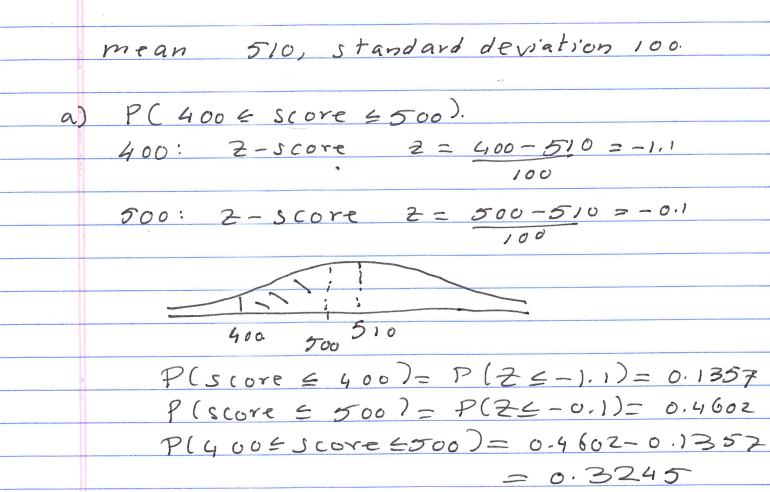 mean 510, standard deviation 100.
a) P( 400 ≤ score ≤ 500).
400: Z-score z = 400-510/100 = -1.1
500: Z-score z = 500-510/100 = -0.1
400 500 510
P(score ≤ 400) = P(Z ≤ -1.1) = 0.1357
P(score ≤ 500) = P(Z ≤ -0.1) = 0.4602
P(400 ≤ score ≤ 500) = 0.4602-0.1357
= 0.3245